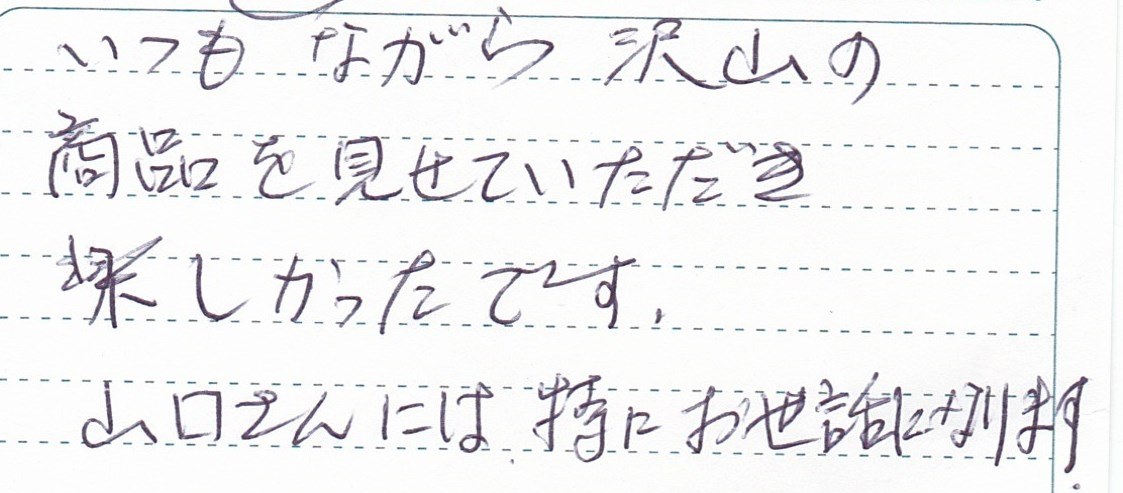 いつもながら沢山の
商品を見せていただき
楽しかったです.
山口さんには、特にお世話になります.